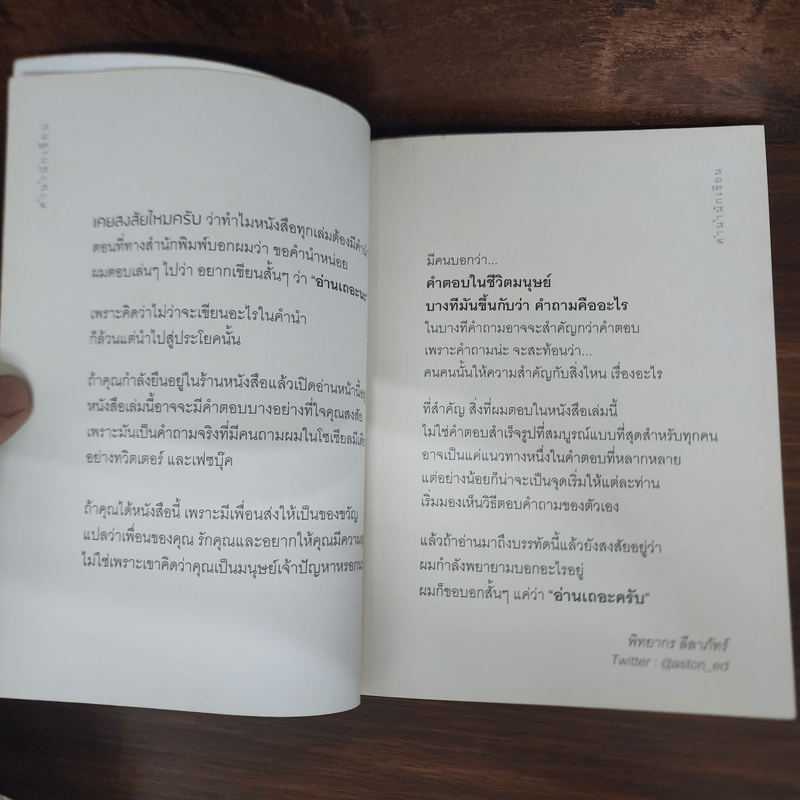 คำนำนักเขียน
เคยสงสัยไหมครับ ว่าทำไมหนังสือทุกเล่มต้องมีคำนำ
ตอนที่ทางสำนักพิมพ์บอกผมว่า ขอคำนำหน่อย
ผมตอบเล่นๆ ไปว่า อยากเขียนสั้นๆ ว่า "อ่านเถอะนะ
เพราะคิดว่าไม่ว่าจะเขียนอะไรในคำนำ
ก็ล้วนแต่นำไปสู่ประโยคนั้น
ถ้าคุณกำลังยืนอยู่ในร้านหนังสือแล้วเปิดอ่านหน้านี้อยู่
หนังสือเล่มนี้อาจจะมีคำตอบบางอย่างที่ใจคุณสงสัย
เพราะมันเป็นคำถามจริงที่มีคนถามผมในโซเชียลมีเดีย
อย่างทวิตเตอร์ และเฟซบุ๊ค
ถ้าคุณได้หนังสือนี้ เพราะมีเพื่อนส่งให้เป็นของขวัญ
แปลว่าเพื่อนของคุณ รักคุณและอยากให้คุณมีความสุข
ไม่ใช่เพราะเขาคิดว่าคุณเป็นมนุษย์เจ้าปัญหาหรอก
คำนำนักเขียน
มีคนบอกว่า...
คำตอบในชีวิตมนุษย์
บางทีมันขึ้นกับว่า คำถามคืออะไร
ในบางทีคำถามอาจจะสำคัญกว่าคำตอบ
เพราะคำถามน่ะ จะสะท้อนว่า...
คนคนนั้นให้ความสำคัญกับสิ่งไหน เรื่องอะไร
ที่สำคัญ สิ่งที่ผมตอบในหนังสือเล่มนี้
ไม่ใช่คำตอบสำเร็จรูปที่สมบูรณ์แบบที่สุดสำหรับทุกคน
อาจเป็นแค่แนวทางหนึ่งในคำตอบที่หลากหลาย
แต่อย่างน้อยก็น่าจะเป็นจุดเริ่มให้แต่ละท่าน
เริ่มมองเห็นวิธีตอบคำถามของตัวเอง
แล้วถ้าอ่านมาถึงบรรทัดนี้แล้วยังสงสัยอยู่ว่า
ผมกำลังพยายามบอกอะไรอยู่
ผมก็ขอบอกสั้นๆ แค่ว่า "อ่านเถอะครับ"
พิทยากร ลีลาภัทร์
Twitter : @aston_ed